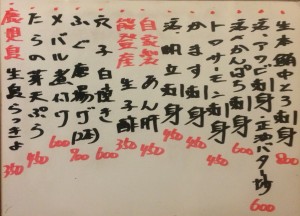 生本鮪中とろ刺身 800
活アワビ刺身・立地バター焼 600
活〆かんぱち刺身 600
トロサーモン刺身 450
かます刺身 450
活帆立刺身 450
自家製 あん肝 450
能登産 生子酢 350
穴子白焼き 600
ふぐ唐揚げ(2コ) 700
メバル煮付け 600
たらの芽天ぷら 450
鹿児島 生島らっきょ 350